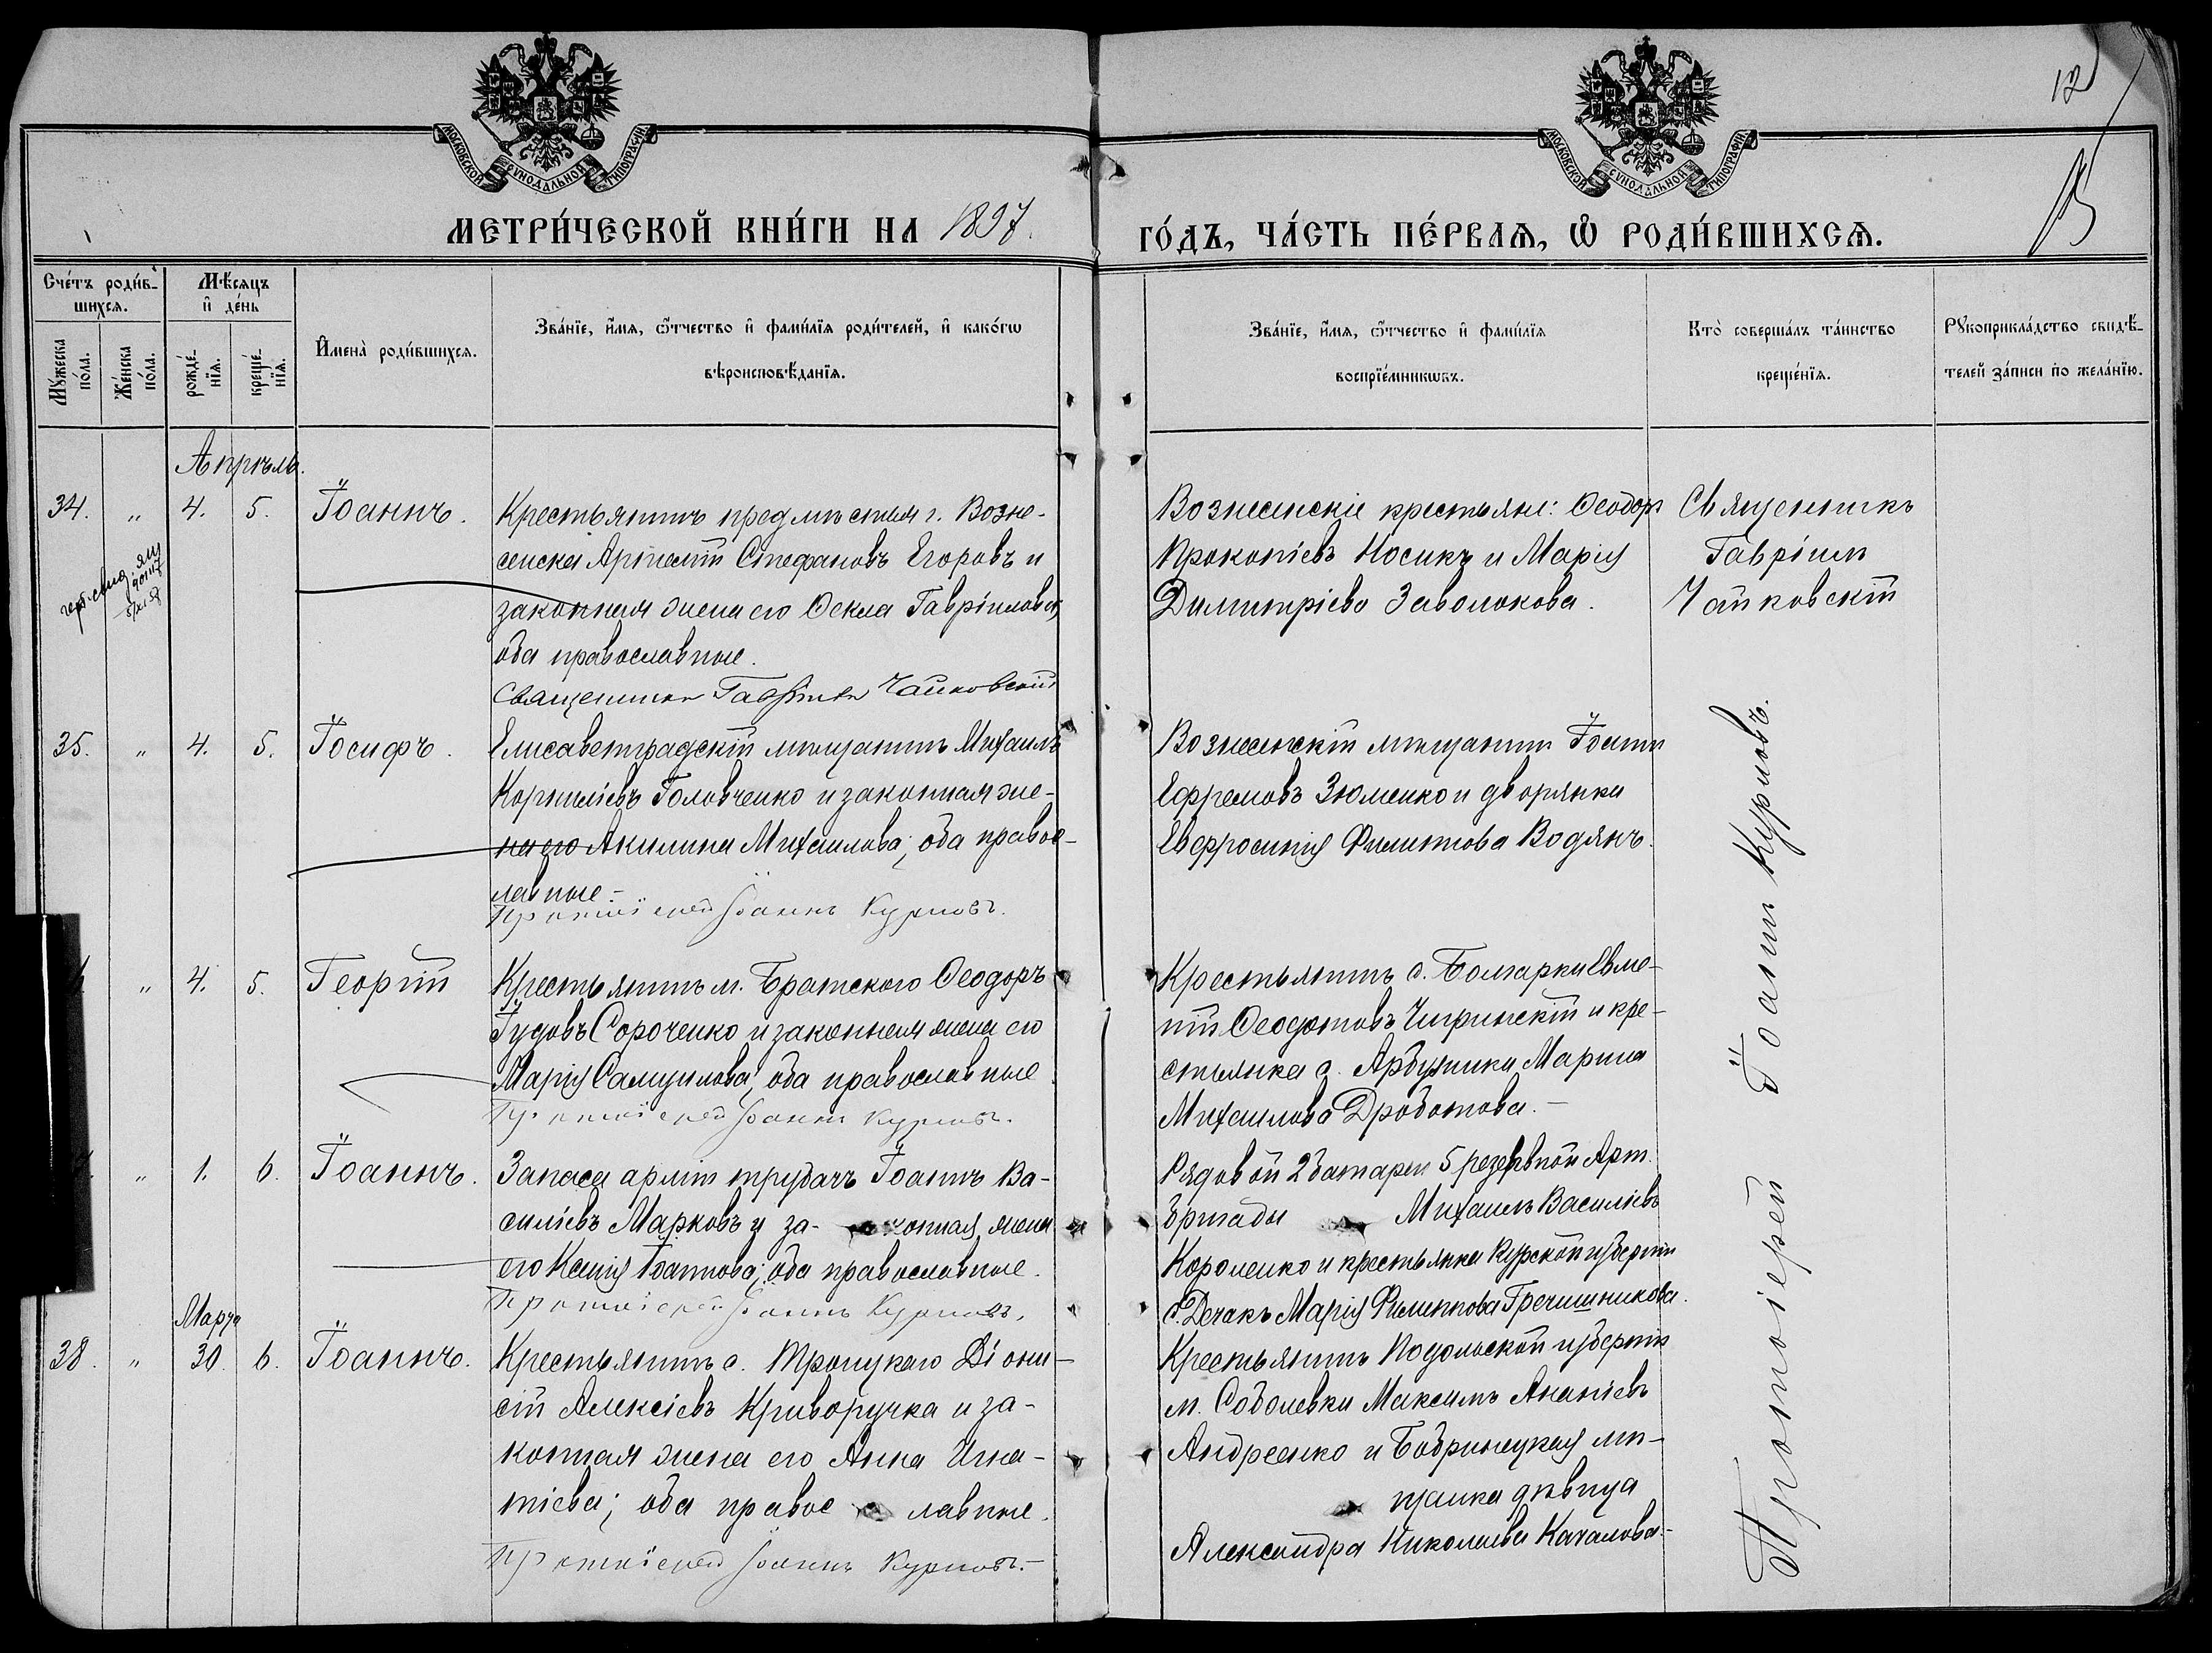 12
МОСКОВСКОЙ СѴНОДАЛЬНОЙ ТИПОГРАФІИ
МОСКОВСКОЙ СѴНОДАЛЬНОЙ ТИПОГРАФІИ
МЕТРИ́ЧЕСКОЙ КНИ́ГИ НА 1897. ГО́ДЪ, ЧА́СТЬ ПЕ́РВАѦ, Ѡ РОДИ́ВШИХСѦ.
Сче́тъ роди́в-
шихсѧ.
Мꙋ́жеска по́ла.
Же́нска по́ла.
Мѣ́сяцъ
и де́нь
рожде́-
нїѧ.
креще́-
нїѧ.
И́мена̀ роди́вшихсѧ.
Зва́нїе, и́мѧ, ѻ́тчество и фами́лїѧ роди́телей, и како́гѡ
вѣроисповѣ́данїѧ.
Зва́нїе, и́мѧ, ѻ́тчество и фами́лїѧ
воспрїе́мникѡвъ.
Кто̀ соверша́лъ та́инство
креще́нїѧ.
Рꙋкоприкла́дство свидѣ́-
телей за́писи по жела́нїю.
Апрѣль.
34. " 4. 5. Іоаннъ.
Крестьянинъ предмѣстья г. Возне-
сенска Артемій Стефановъ Егоровъ и
законная жена его Ѳекла Гавріилова,
оба православные.
Священникъ Гавріилъ Чайковскій
Вознесенскіе крестьяне: Ѳеодоръ
Прокопіевъ Носикъ и Марія
Димитріева Заволокова.
Священникъ
Гавріилъ
Чайковскій
35. " 4. 5. Іосифъ.
Елисаветградскій мѣщанинъ Михаилъ
Корниліевъ Головченко и законная же-
на его Акилина Михаилова; оба правос-
лавные.-
Протоіерей Іоаннъ Курловъ.
Вознесенскій мѣщанинъ Іоаннъ
Ефремовъ Зюменко и дворянка
Евфросинія Филиппова Водянъ.
" 4. 5. Георгій
Крестьянинъ м. Братского Ѳеодоръ
Іудовъ Сороченко и законная жена его
Марія Самуилова; оба православные.
Протоіерей Іоаннъ Курловъ.
Крестьянинъ с. Болгарки Евме-
ній Ѳеодотовъ Чигринскій и кре-
стьянка с. Арбузинки Марина
Михаилова Дроботова.-
" 1. 6. Іоаннъ.
Запаса арміи трубачъ Іоаннъ Ва-
силіевъ Марковъ и за- конная жена
его Ксенія Іоаннова; оба православные.
Протоіерей Іоаннъ Курловъ.
Рядовой 2 батареи 5 резервной Арт.
бригады Михаилъ Василіевъ
Короленко и крестьянка Курской губерніи
с. Дечакъ Марія Филиппова Гречишникова.
Марта
38. " 30. 6. Іоаннъ.
Крестьянинъ с. Троицкаго Діони-
сій Алексіевъ Криворучка и за-
конная жена его Анна Игна-
тіева; оба правос лавные.
Протоіерей Іоаннъ Курловъ.-
Крестьянинъ Подольской губерніи
м. Соболевки Максимъ Ананіевъ
Андреенко и Бобринецкая мѣ-
щанка дѣвица
Александра Николаева Качалова.-
Протоіерей Іоаннъ Курловъ.